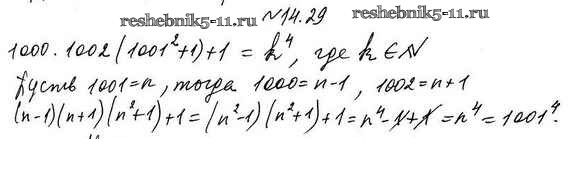 reshebnik5-11.ru
№14.29
reshebnik5-11.ru
1000·1002(1001²+1)+1 = k⁴, где k∈N
Пусть 1001=n, тогда 1000=n-1, 1002=n+1
(n-1)(n+1)(n²+1)+1=(n²-1)(n²+1)+1=n⁴-1+1=n⁴=1001⁴.